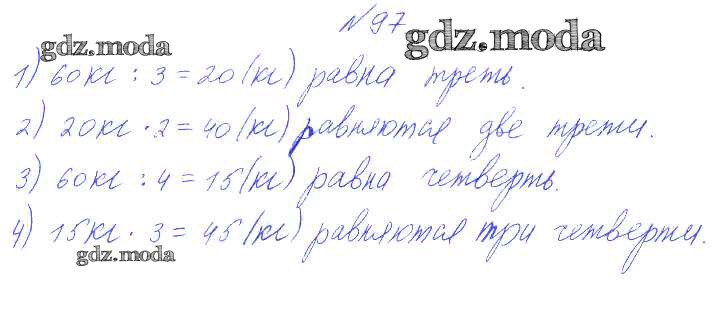 № 97
gdz.moda
gdz.moda
1) 60кг : 3 = 20 (кг) равна треть.
2) 20кг · 2 = 40 (кг) равняются две трети.
3) 60кг : 4 = 15 (кг) равна четверть.
4) 15кг · 3 = 45 (кг) равняются три четверти.
gdz.moda